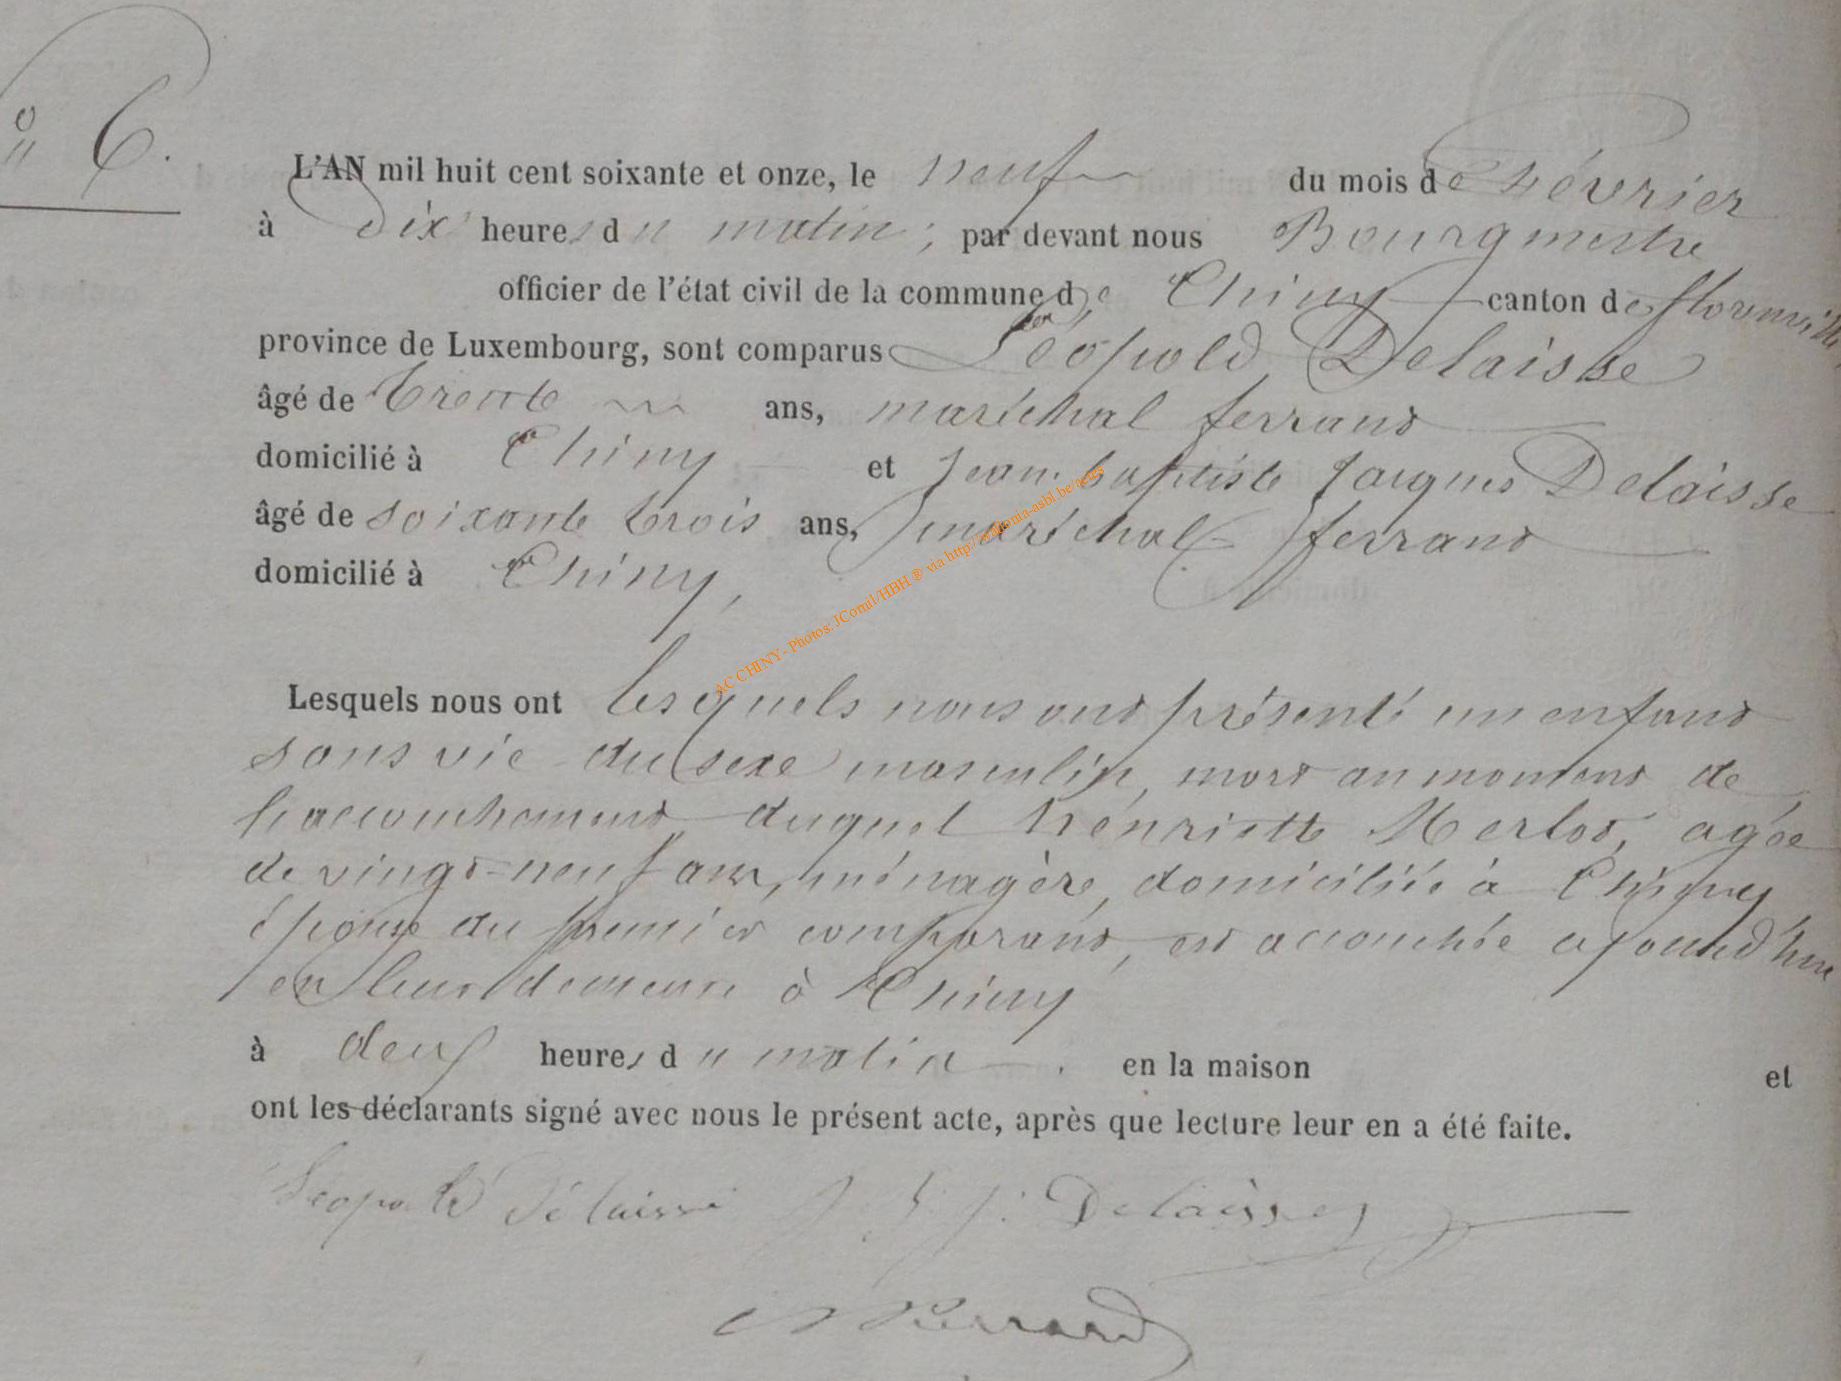 n° 6.
L'AN mil huit cent soixante et onze, le neuf du mois de février
à dix heures du matin, par devant nous Bourgmestre
officier de l'état civil de la commune de Chiny canton de florenville
province de Luxembourg, sont comparus Léopold Delaisse
âgé de trente ans, maréchal ferrant
domicilié à Chiny et Jean-baptiste Jacques Delaisse
âgé de soixante trois ans, maréchal ferrant
domicilié à Chiny,
Lesquels nous ont lesquels nous ont présenté un enfant
sans vie du sexe masculin, mort au moment de
l'accouchement duquel henriette Merlot, agée
de vingt-neuf ans, ménagère, domiciliée à Chiny
épouse du premier comparant, est accouchée ajourd'hui
en leur demeure à Chiny
à deux heures du matin. en la maison et
ont les déclarants signé avec nous le présent acte, après que lecture leur en a été faite.
Leopold Délaisse J. b. J. Delaisse
AC CHINY- Photos: JConul/HBH ® via http://